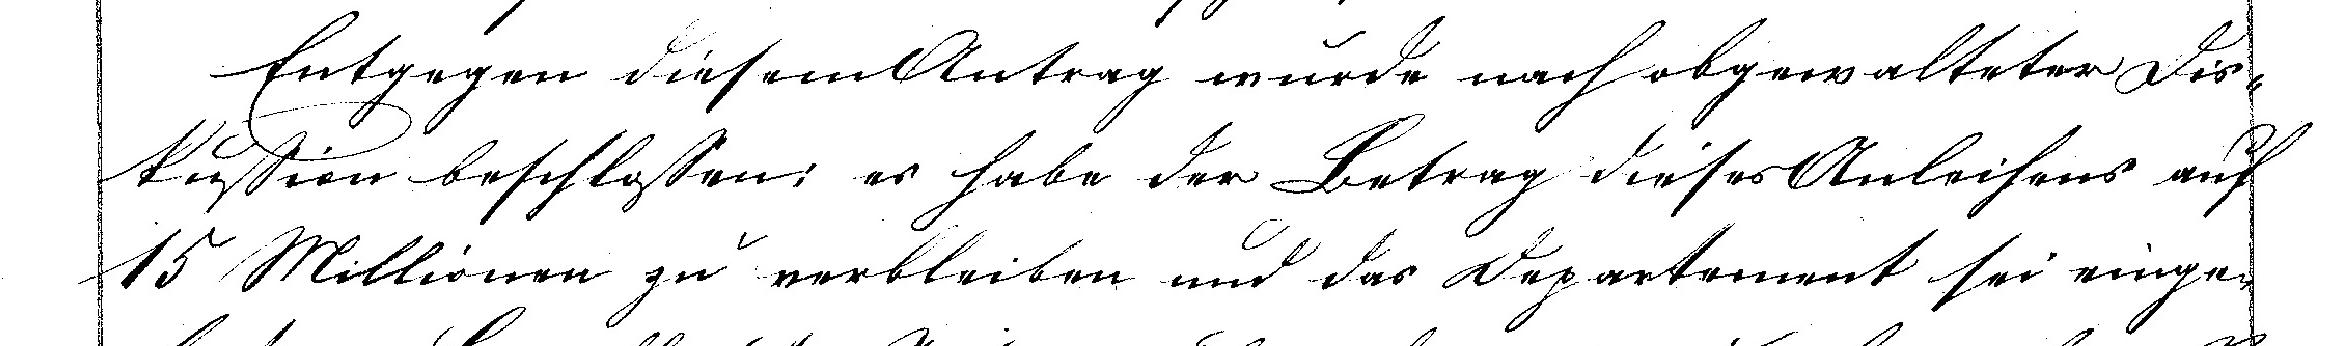 Entgegen diesem Antrag wurde nach obgewalteter Dis-
kussion beschlossen: es habe der Betrag dieses Anleihens auf
15 Millionen zu verbleiben und das Departement sei einge-